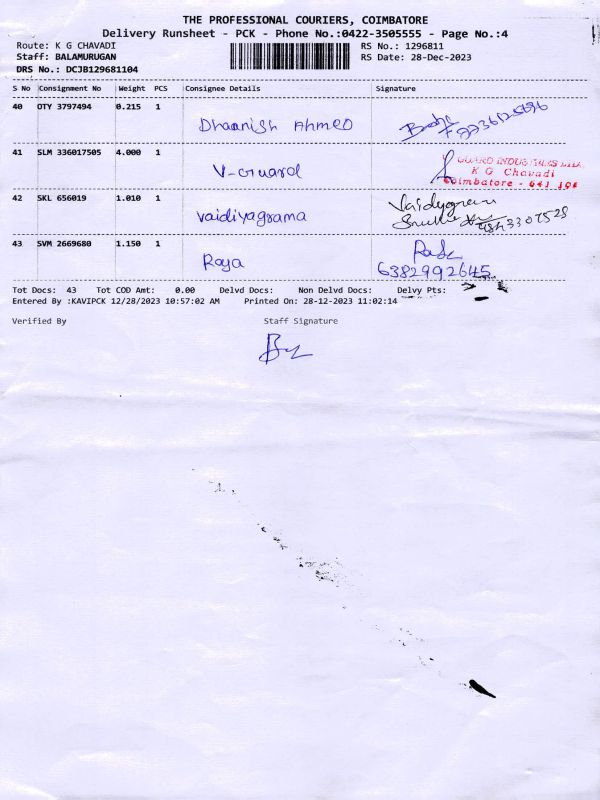 THE PROFESSIONAL COURIERS, COIMBATORE
Delivery Runsheet - PCK - Phone No.:0422-3505555 - Page No.:4
Route: K G CHAVADI RS No.: 1296811
Staff: BALAMURUGAN RS Date: 28-Dec-2023
DRS No.: DCJB129681104
S No Consignment No Weight PCS Consignee Details Signature
40 OTY 3797494 0.215 1 Dhaanish Ahmed
41 SLM 336017505 4.000 1 V-Guard GUARD INDUSTRIES LTD.
K G Chavadi
Coimbatore - 641 105
42 SKL 656019 1.010 1 vaidiyagrama Vaidyagram
43 SVM 2669680 1.150 1 Raja
6382992645
Tot Docs: 43 Tot COD Amt: 0.00 Delvd Docs: Non Delvd Docs: Delvy Pts:
Entered By :KAVIPCK 12/28/2023 10:57:02 AM Printed On: 28-12-2023 11:02:14
Verified By Staff Signature